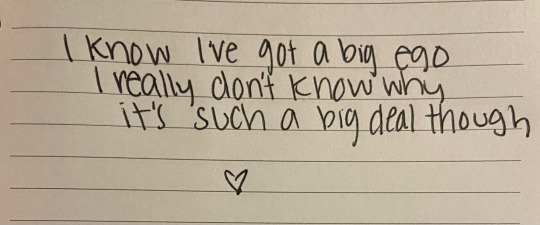 I know I've got a big ego
I really don't know why
it's such a big deal though